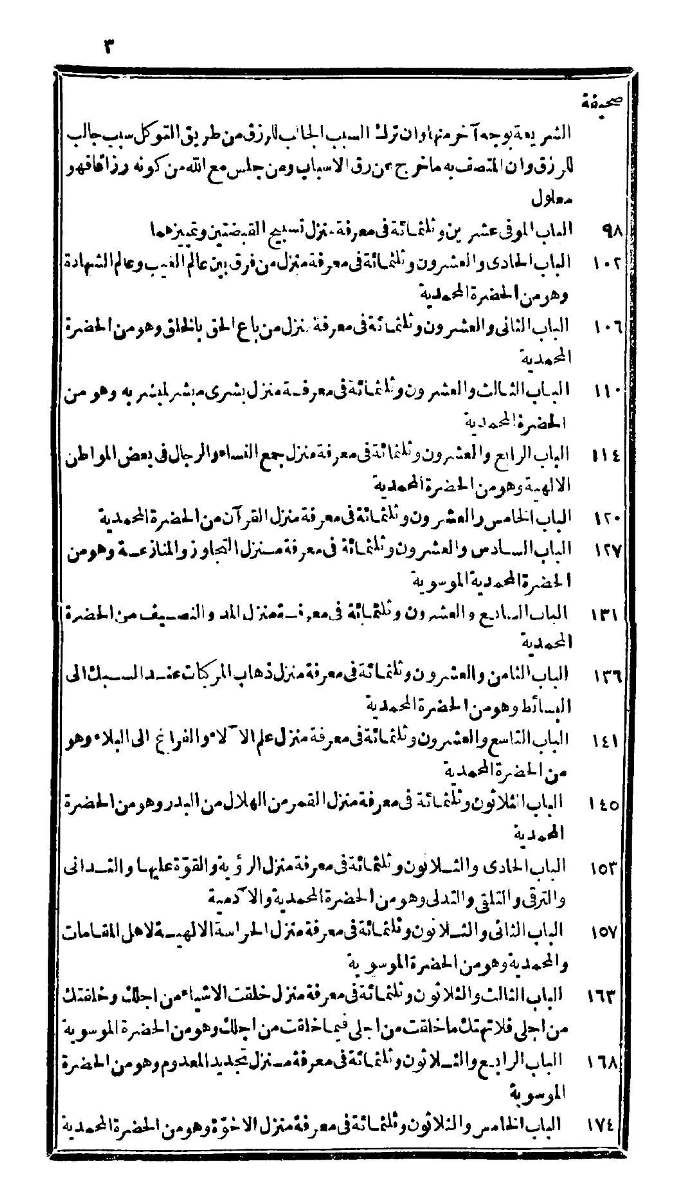 ٣
صحيفة
الشريعة بوجه آخر منها وان ترك السبب الجالب للرزق من طريق التوكل سبب جالب
للرزق وان المتصف به ما خرج عن رق الاسباب ومن جلس مع الله من كونه رزاقا فهو
معلول
٩٨ الباب الموفى عشرين وثلثمائة فى معرفة منزل تسبيح القبضتين وتمييزهما
١٠٢ الباب الحادى والعشرون وثلثمائة فى معرفة منزل من فرق بين عالم الغيب وعالم الشهادة
وهو من الحضرة المحمدية
١٠٦ الباب الثانى والعشرون وثلثمائة فى معرفة منزل من باع الحق بالخلق وهو من الحضرة
المحمدية
١١٠ الباب الثالث والعشرون وثلثمائة فى معرفة منزل بشرى مبشر لمبشر به وهو من
الحضرة المحمدية
١١٤ الباب الرابع والعشرون وثلثمائة فى معرفة منزل جمع النساء والرجال فى بعض المواطن
الالهية وهو من الحضرة المحمدية
١٢٠ الباب الخامس والعشرون وثلثمائة فى معرفة منزل القرآن من الحضرة المحمدية
١٢٧ الباب السادس والعشرون وثلثمائة فى معرفة منزل التجاوز والمنازعة وهو من
الحضرة المحمدية الموسوية
١٣١ الباب السابع والعشرون وثلثمائة فى معرفة منزل المد والنصيف من الحضرة
المحمدية
١٣٦ الباب الثامن والعشرون وثلثمائة فى معرفة منزل ذهاب المركبات عند السبك الى
البسائط وهو من الحضرة المحمدية
١٤١ الباب التاسع والعشرون وثلثمائة فى معرفة منزل علم الآلاء والفراغ الى البلاء وهو
من الحضرة المحمدية
١٤٥ الباب الثلاثون وثلثمائة فى معرفة منزل القمر من الهلال من البدر وهو من الحضرة
المحمدية
١٥٣ الباب الحادى والثلاثون وثلثمائة فى معرفة منزل الرؤية والقوة عليها والتدانى
والترقى والتلقى والتدلى وهو من الحضرة المحمدية والآدمية
١٥٧ الباب الثانى والثلاثون وثلثمائة فى معرفة منزل الحراسة الالهية لاهل المقامات
والمحمدية وهو من الحضرة الموسوية
١٦٣ الباب الثالث والثلاثون وثلثمائة فى معرفة منزل خلقت الاشياء من اجلك وخلقتك
من اجلى فلا تهتك ما خلقت من اجلى فيما خلقت من اجلك وهو من الحضرة الموسوية
١٦٨ الباب الرابع والثلاثون وثلثمائة فى معرفة منزل تجديد المعدوم وهو من الحضرة
الموسوية
١٧٤ الباب الخامس والثلاثون وثلثمائة فى معرفة منزل الاخوة وهو من الحضرة المحمدية